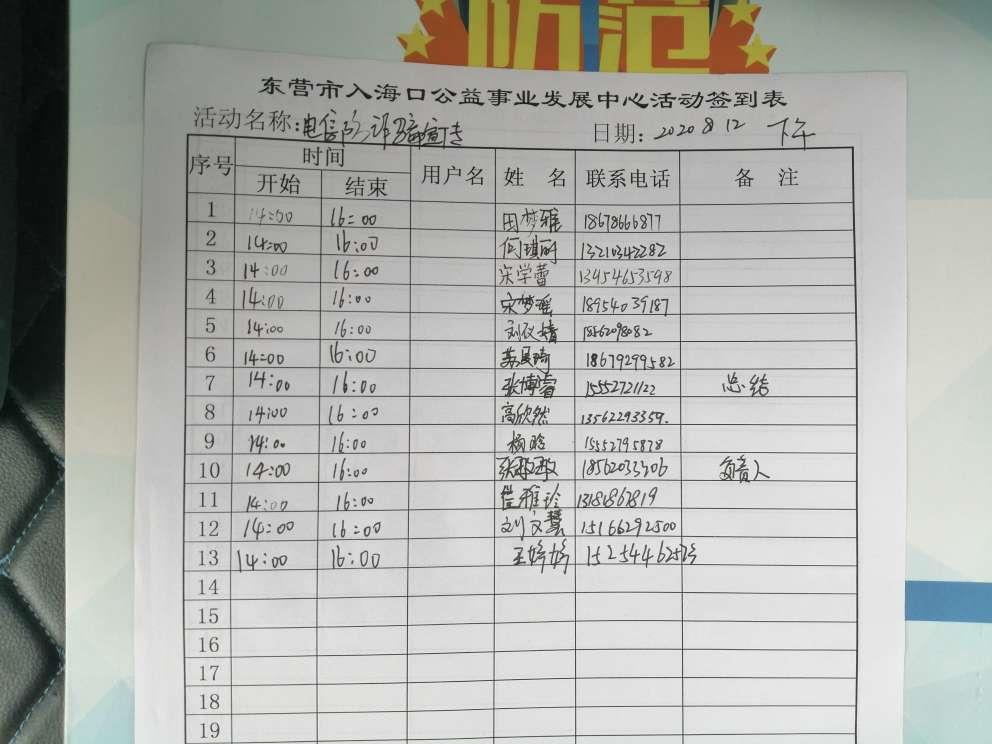 防范
东营市入海口公益事业发展中心活动签到表
活动名称:电信防诈骗宣传 日期: 2020 8 12 下午
序号 时间 用户名 姓 名 联系电话 备 注
开始 结束
1 14:00 16:00 田梦雅 18678666877
2 14:00 16:00 何琪丽 13210342282
3 14:00 16:00 宋学蕾 13954653598
4 14:00 16:00 宋梦瑶 18954039187
5 14:00 16:00 刘仪婧 18562098082
6 14:00 16:00 18679299582
7 14:00 16:00 张博睿 15552721122 总结
8 14:00 16:00 高欣然 13562293359.
9 14:00 16:00 杨晗 15552795878
10 14:00 16:00 张敬敬 负责人
11 14:00 16:00
12 14:00 16:00 刘文慧 15166292500
13 14:00 16:00 王婷婷
14
15
16
17
18
19